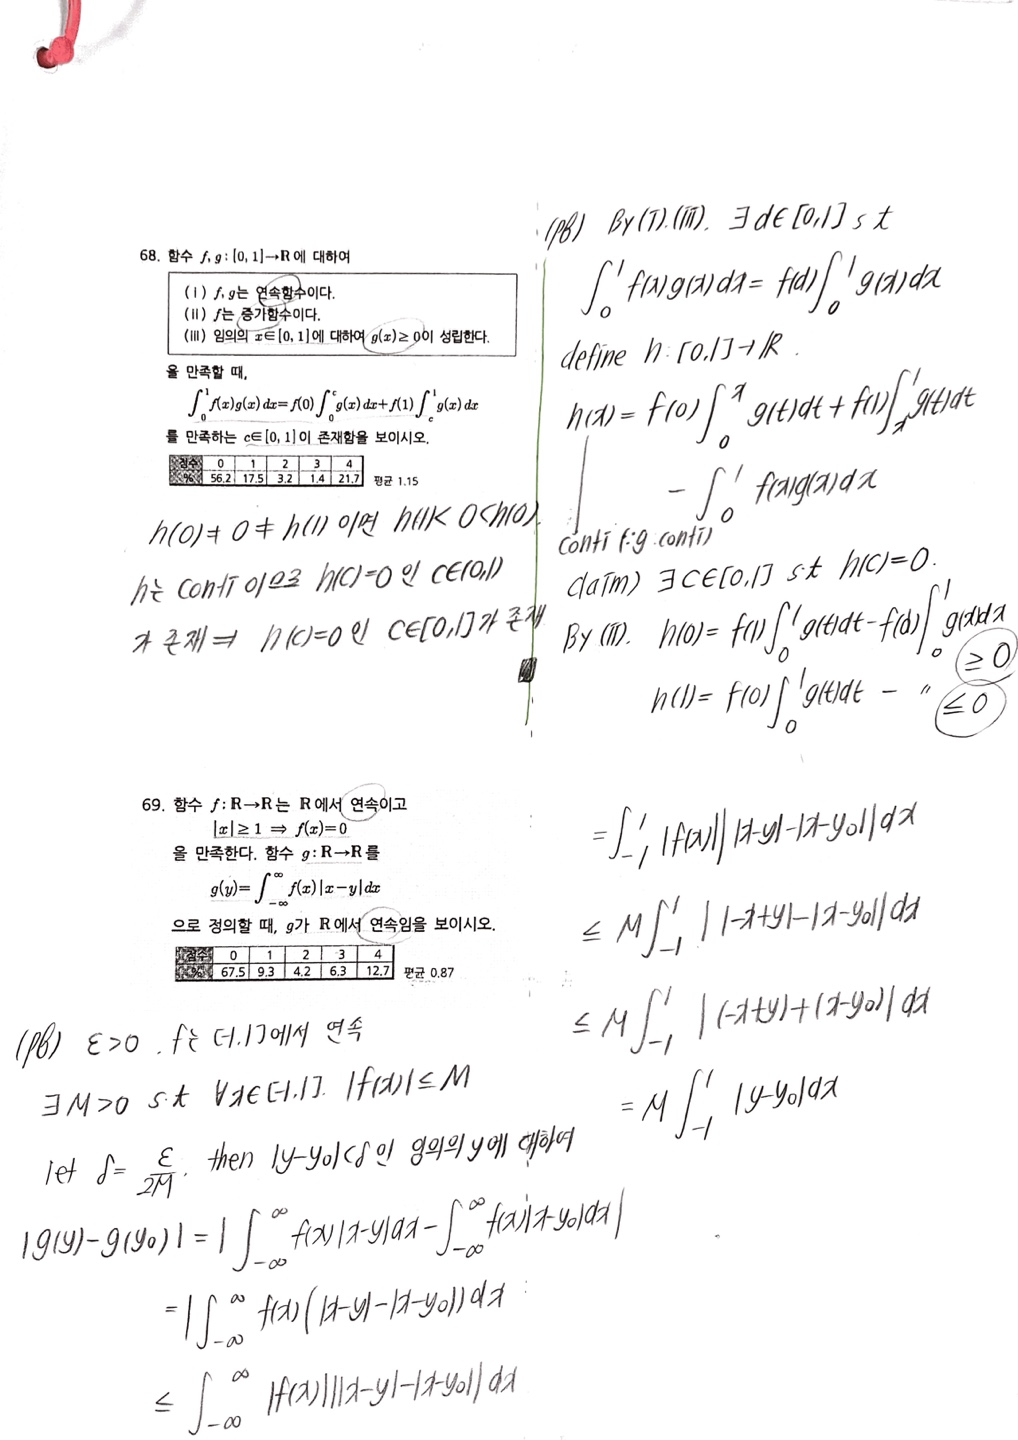 68. 함수 f, g : [0, 1]→R에 대하여
(Ⅰ) f, g는 연속함수이다.
(Ⅱ) f는 증가함수이다.
(Ⅲ) 임의의 x∈[0, 1]에 대하여 g(x)≥0이 성립한다.
을 만족할 때,
∫₀¹ f(x)g(x)dx=f(0)∫₀ᶜ g(x)dx+f(1)∫_c¹ g(x)dx
를 만족하는 c∈[0, 1]이 존재함을 보이시오.
점수 0 1 2 3 4
% 56.2 17.5 3.2 1.4 21.7 평균 1.15
(pf) By (ⅰ).(ⅲ). ∃d∈[0,1] s t
∫₀¹ f(x)g(x)dx = f(d)∫₀¹ g(x)dx
define h : [0,1]→ℝ.
h(x) = f(0)∫₀ˣ g(t)dt + f(1)∫ₓ¹ g(t)dt
- ∫₀¹ f(x)g(x)dx
conti (∵g conti)
claim) ∃c∈[0,1] s.t h(c)=0.
By (ⅱ). h(0) = f(1)∫₀¹ g(t)dt - f(d)∫₀¹ g(x)dx ≥0
h(1) = f(0)∫₀¹ g(t)dt - 〃 ≤0
h(0)≠0≠h(1) 이면 h(1)<0<h(0).
h는 conti 이므로 h(c)=0 인 c∈(0,1)
가 존재 ⇒ h(c)=0 인 c∈[0,1]가 존재
69. 함수 f : R→R는 R에서 연속이고
|x|≥1 ⇒ f(x)=0
을 만족한다. 함수 g : R→R를
g(y)=∫_{-∞}^{∞} f(x)|x-y|dx
으로 정의할 때, g가 R에서 연속임을 보이시오.
점수 0 1 2 3 4
% 67.5 9.3 4.2 6.3 12.7 평균 0.87
(pf) ε>0 . f는 [-1,1]에서 연속
∃M>0 s.t ∀x∈[-1,1]. |f(x)|≤M
let δ= ε/2M. then |y-y₀|<δ인 임의의 y에 대하여
|g(y)-g(y₀)| = |∫_{-∞}^{∞} f(x)|x-y|dx - ∫_{-∞}^{∞} f(x)|x-y₀|dx|
= |∫_{-∞}^{∞} f(x)(|x-y|-|x-y₀|)dx
≤ ∫_{-∞}^{∞} |f(x)|||x-y|-|x-y₀||dx
= ∫_{-1}^{1} |f(x)|||x-y|-|x-y₀||dx
≤ M∫_{-1}^{1} ||-x+y|-|x-y₀||dx
≤ M∫_{-1}^{1} |(-x+y)+(x-y₀)|dx
= M∫_{-1}^{1} |y-y₀|dx